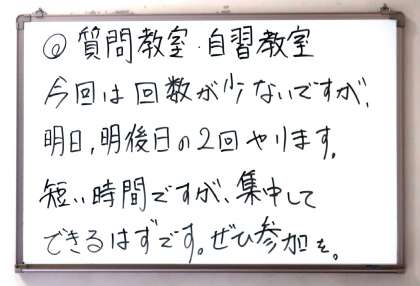 ◎ 質問教室・自習教室
今回は回数が少ないですが、
明日,明後日の2回やります。
短い時間ですが、集中して
できるはずです。ぜひ参加を。